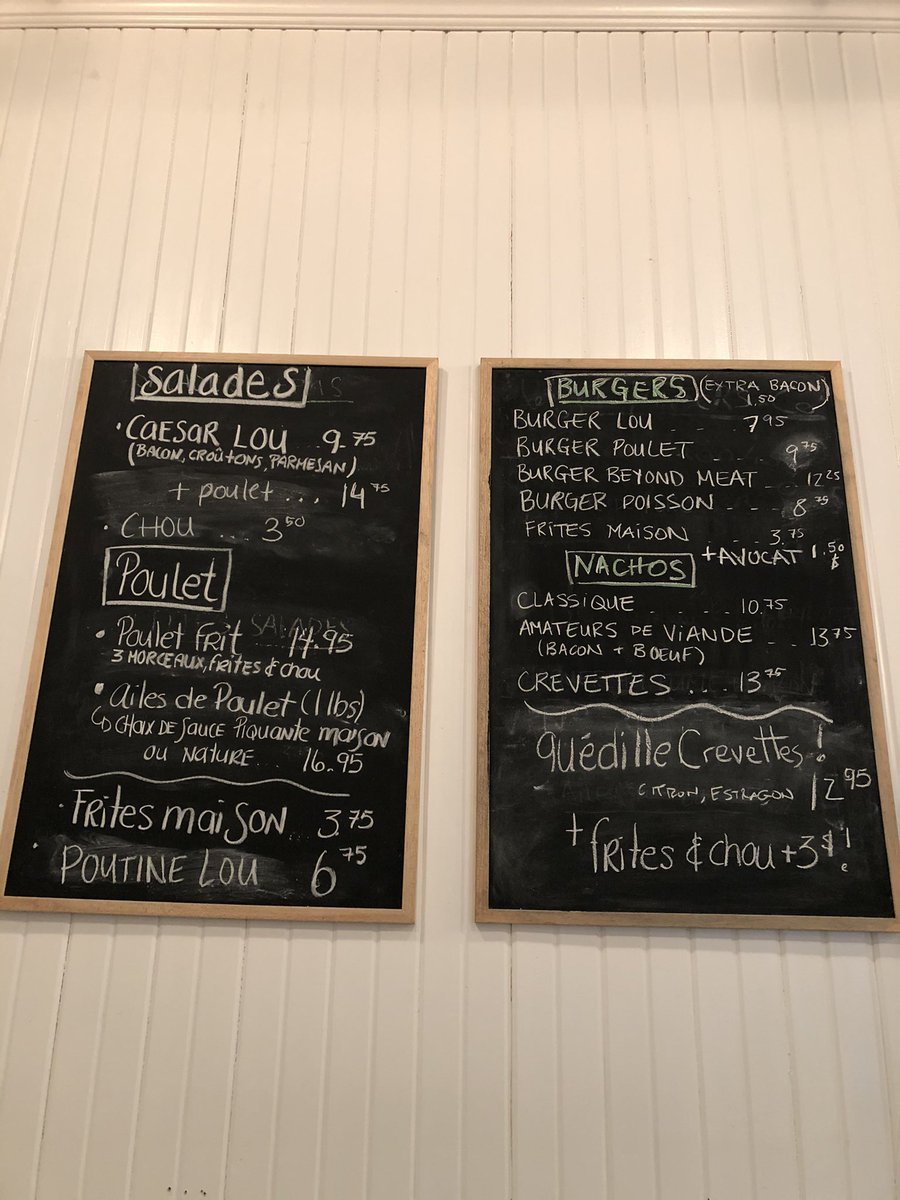 Salades
• CAESAR LOU .. 9.75
(BACON, CROÛTONS, PARMESAN)
+ poulet ... 14 75
• CHOU ... 3 50
Poulet
• Poulet Frit 14.95
3 MORCEAUX, frites & chou
• Ailes de Poulet (1 lbs)
CHOIX DE SAUCE Piquante maison
OU NATURE ... 16.95
• Frites maison .. 3.75
• POUTINE LOU 6 75
BURGERS (EXTRA BACON)
1.50
BURGER LOU .... 7 95
BURGER POULET .... 9 75
BURGER BEYOND MEAT .. 12 25
BURGER POISSON .. 8 75
FRITES MAISON .... 3.75
+ AVOCAT 1.50 $
NACHOS
CLASSIQUE .... 10.75
AMATEURS DE VIANDE .. 13 75
(BACON + BOEUF)
CREVETTES ... 13 75
guédille Crevettes !
CITRON, ESTRAGON 12 95
+ frites & chou + 3 $ !